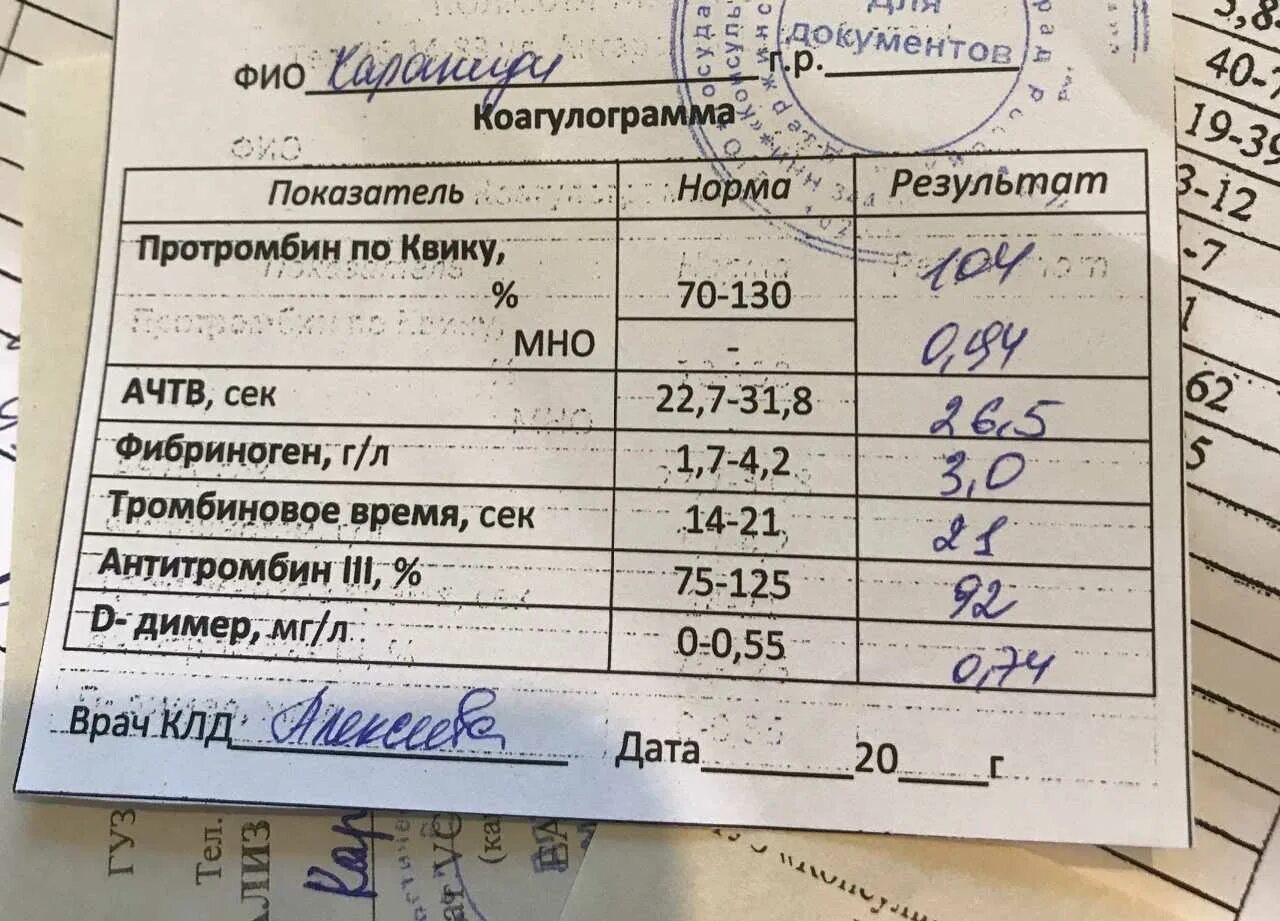 для
документов
ФИО г.р.
Коагулограмма
Показатель Норма Результат
Протромбин по Квику, 104
% 70-130
МНО - 0,94
АЧТВ, сек 22,7-31,8 26,5
Фибриноген, г/л 1,7-4,2 3,0
Тромбиновое время, сек 14-21 21
Антитромбин III, % 75-125 92
D- димер, мг/л 0-0,55 0,74
Врач КЛД Алексеева
Дата 20 г
40-
19-39
3-12
-7
1
62
5
ГУЗ
Тел.
АЛИЗ
Кар